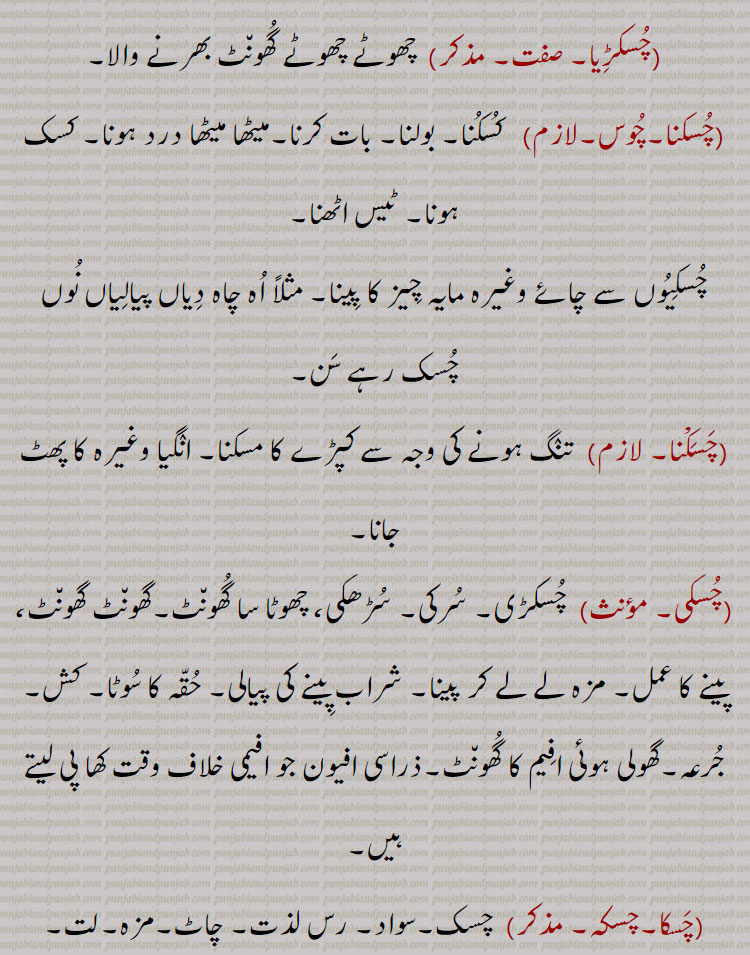 (چُسکڑِیا۔ صفت۔ مذکر) چھوٹے چھوٹے گُھونّٹ بھرنے والا۔
(چُسکنا۔چُوس۔لازم) کُسکُنا۔ بولنا۔ بات کرنا۔میٹھا میٹھا درد ہونا۔ کسک
ہونا۔ ٹیس اٹھنا۔
چُسکِیُوں سے چائے وغیرہ مایہ چیز کا پینا۔ مثلاً اُہ چاہ دِیاں پیالِیاں نُوں
چُسک رہے سَن۔
(چَسَکْنا۔ لازم) تنگ ہونے کی وجہ سے کپڑے کا مسکنا۔ انگیا وغیرہ کا پھٹ
جانا۔
(چُسکی۔ مؤنث) چُسکڑی۔ سُرکی۔ سُڑھکی، چھوٹا سا گُھونّٹ۔گھونّٹ گھونّٹ،
پینے کا عمل۔ مزہ لے لے کر پینا۔ شراب پِینے کی پیالی۔ حُقّہ کا سُوٹا۔ کش۔
جُرعہ۔گھولی ہوئی افِیم کا گُھونّٹ۔ذراسی افیون جو افیمی خلاف وقت کھا پی لیتے
ہیں۔
(چَسکا۔چسکہ۔ مذکر) چسک۔سواد۔ رس لذت۔ چاٹ۔مزہ۔لت۔